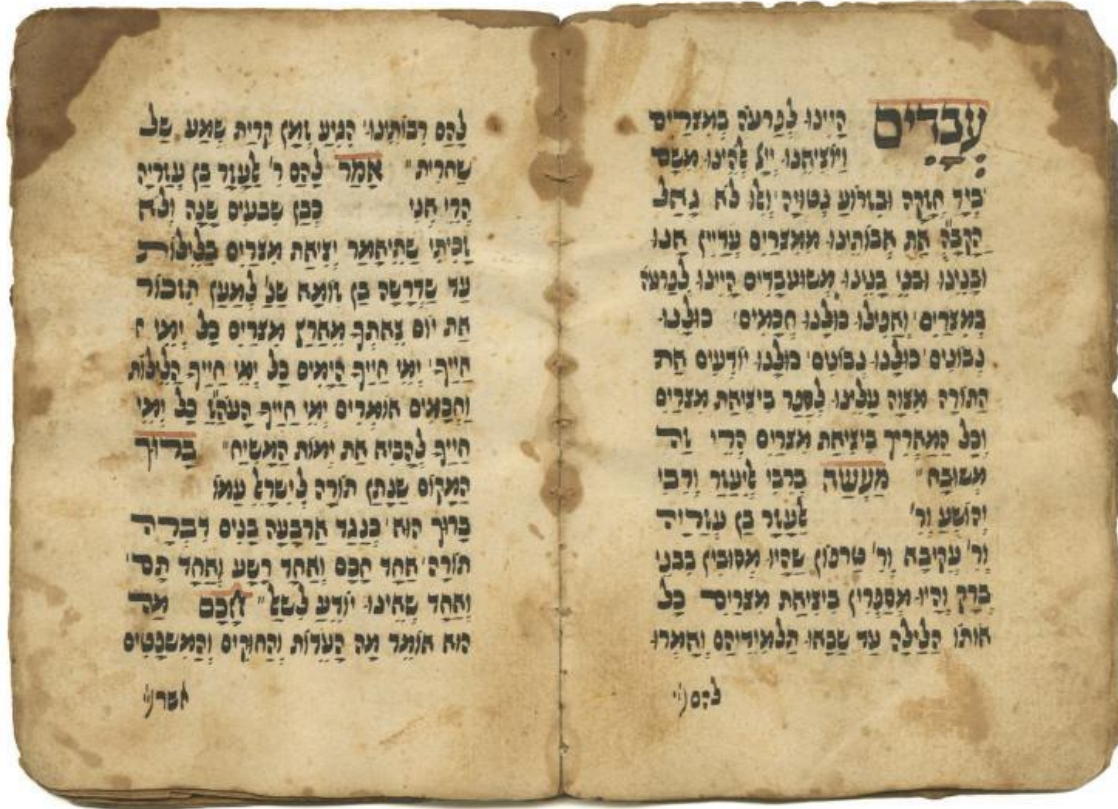 עֲבָדִים הָיִינוּ לְפַרְעֹה בְּמִצְרַיִם
וַיּוֹצִיאֵנוּ יְיָ אֱלֹהֵינוּ מִשָּׁם
בְּיָד חֲזָקָה וּבִזְרוֹעַ נְטוּיָה וְאִלּוּ לֹא גָאַל
הַקָּבָּ״ה אֶת אֲבוֹתֵינוּ מִמִּצְרַיִם עֲדַיִין אָנוּ
וּבָנֵינוּ וּבְנֵי בָנֵינוּ מְשׁוּעְבָּדִים הָיִינוּ לְפַרְעֹה
בְּמִצְרַיִם וַאֲפִילוּ כּוּלָּנוּ חֲכָמִים כּוּלָּנוּ
נְבוֹנִים כּוּלָּנוּ נְבוֹנִים כּוּלָּנוּ יוֹדְעִים אֶת
הַתּוֹרָה מִצְוָה עָלֵינוּ לְסַפֵּר בִּיצִיאַת מִצְרַיִם
וְכָל הַמַּאֲרִיךְ בִּיצִיאַת מִצְרַיִם הֲרֵי זֶה
מְשׁוּבָּח מַעֲשֶׂה בְּרַבִּי אֱלִיעֶזֶר וְרַבִּי
יְהוֹשֻׁעַ וְר' אֶלְעָזָר בֶּן עֲזַרְיָה
וְר' עֲקִיבָא וְר' טַרְפוֹן שֶׁהָיוּ מְסוּבִּין בִּבְנֵי
בְרַק וְהָיוּ מְסַפְּרִין בִּיצִיאַת מִצְרַיִם כָּל
אוֹתוֹ הַלַּיְלָה עַד שֶׁבָּאוּ תַלְמִידֵיהֶם וְאָמְרוּ
להם
לָהֶם רַבּוֹתֵינוּ הִגִּיעַ זְמַן קְרִית שְׁמַע שֶׁל
שַׁחֲרִית אָמַר לָהֶם ר' אֶלְעָזָר בֶּן עֲזַרְיָה
הֲרֵי אֲנִי כְּבֶן שִׁבְעִים שָׁנָה וְלֹא
זָכִיתִי שֶׁתֵּיאָמֵר יְצִיאַת מִצְרַיִם בַּלֵּילוֹת
עַד שֶׁדְּרָשָׁהּ בֶּן זוֹמָא שֶׁנֶּ' לְמַעַן תִּזְכּוֹר
אֶת יוֹם צֵאתְךָ מֵאֶרֶץ מִצְרַיִם כָּל יְמֵי
חַיֶּיךָ יְמֵי חַיֶּיךָ הַיָּמִים כָּל יְמֵי חַיֶּיךָ הַלֵּילוֹת
וַחֲכָמִים אוֹמְרִים יְמֵי חַיֶּיךָ הָעה״ז כָּל יְמֵי
חַיֶּיךָ לְהָבִיא אֶת יְמוֹת הַמָּשִׁיחַ בָּרוּךְ
הַמָּקוֹם שֶׁנָּתַן תּוֹרָה לְיִשְׂרָאֵל עַמּוֹ
בָּרוּךְ הוּא כְּנֶגֶד אַרְבָּעָה בָנִים דִּבְּרָה
תוֹרָה אֶחָד חָכָם וְאֶחָד רָשָׁע וְאֶחָד תָּם
וְאֶחָד שֶׁאֵינוֹ יוֹדֵעַ לִשְׁאַל חָכָם מַה
הוּא אוֹמֵר מָה הָעֵדוֹת וְהַחוּקִּים וְהַמִּשְׁפָּטִים
אשר